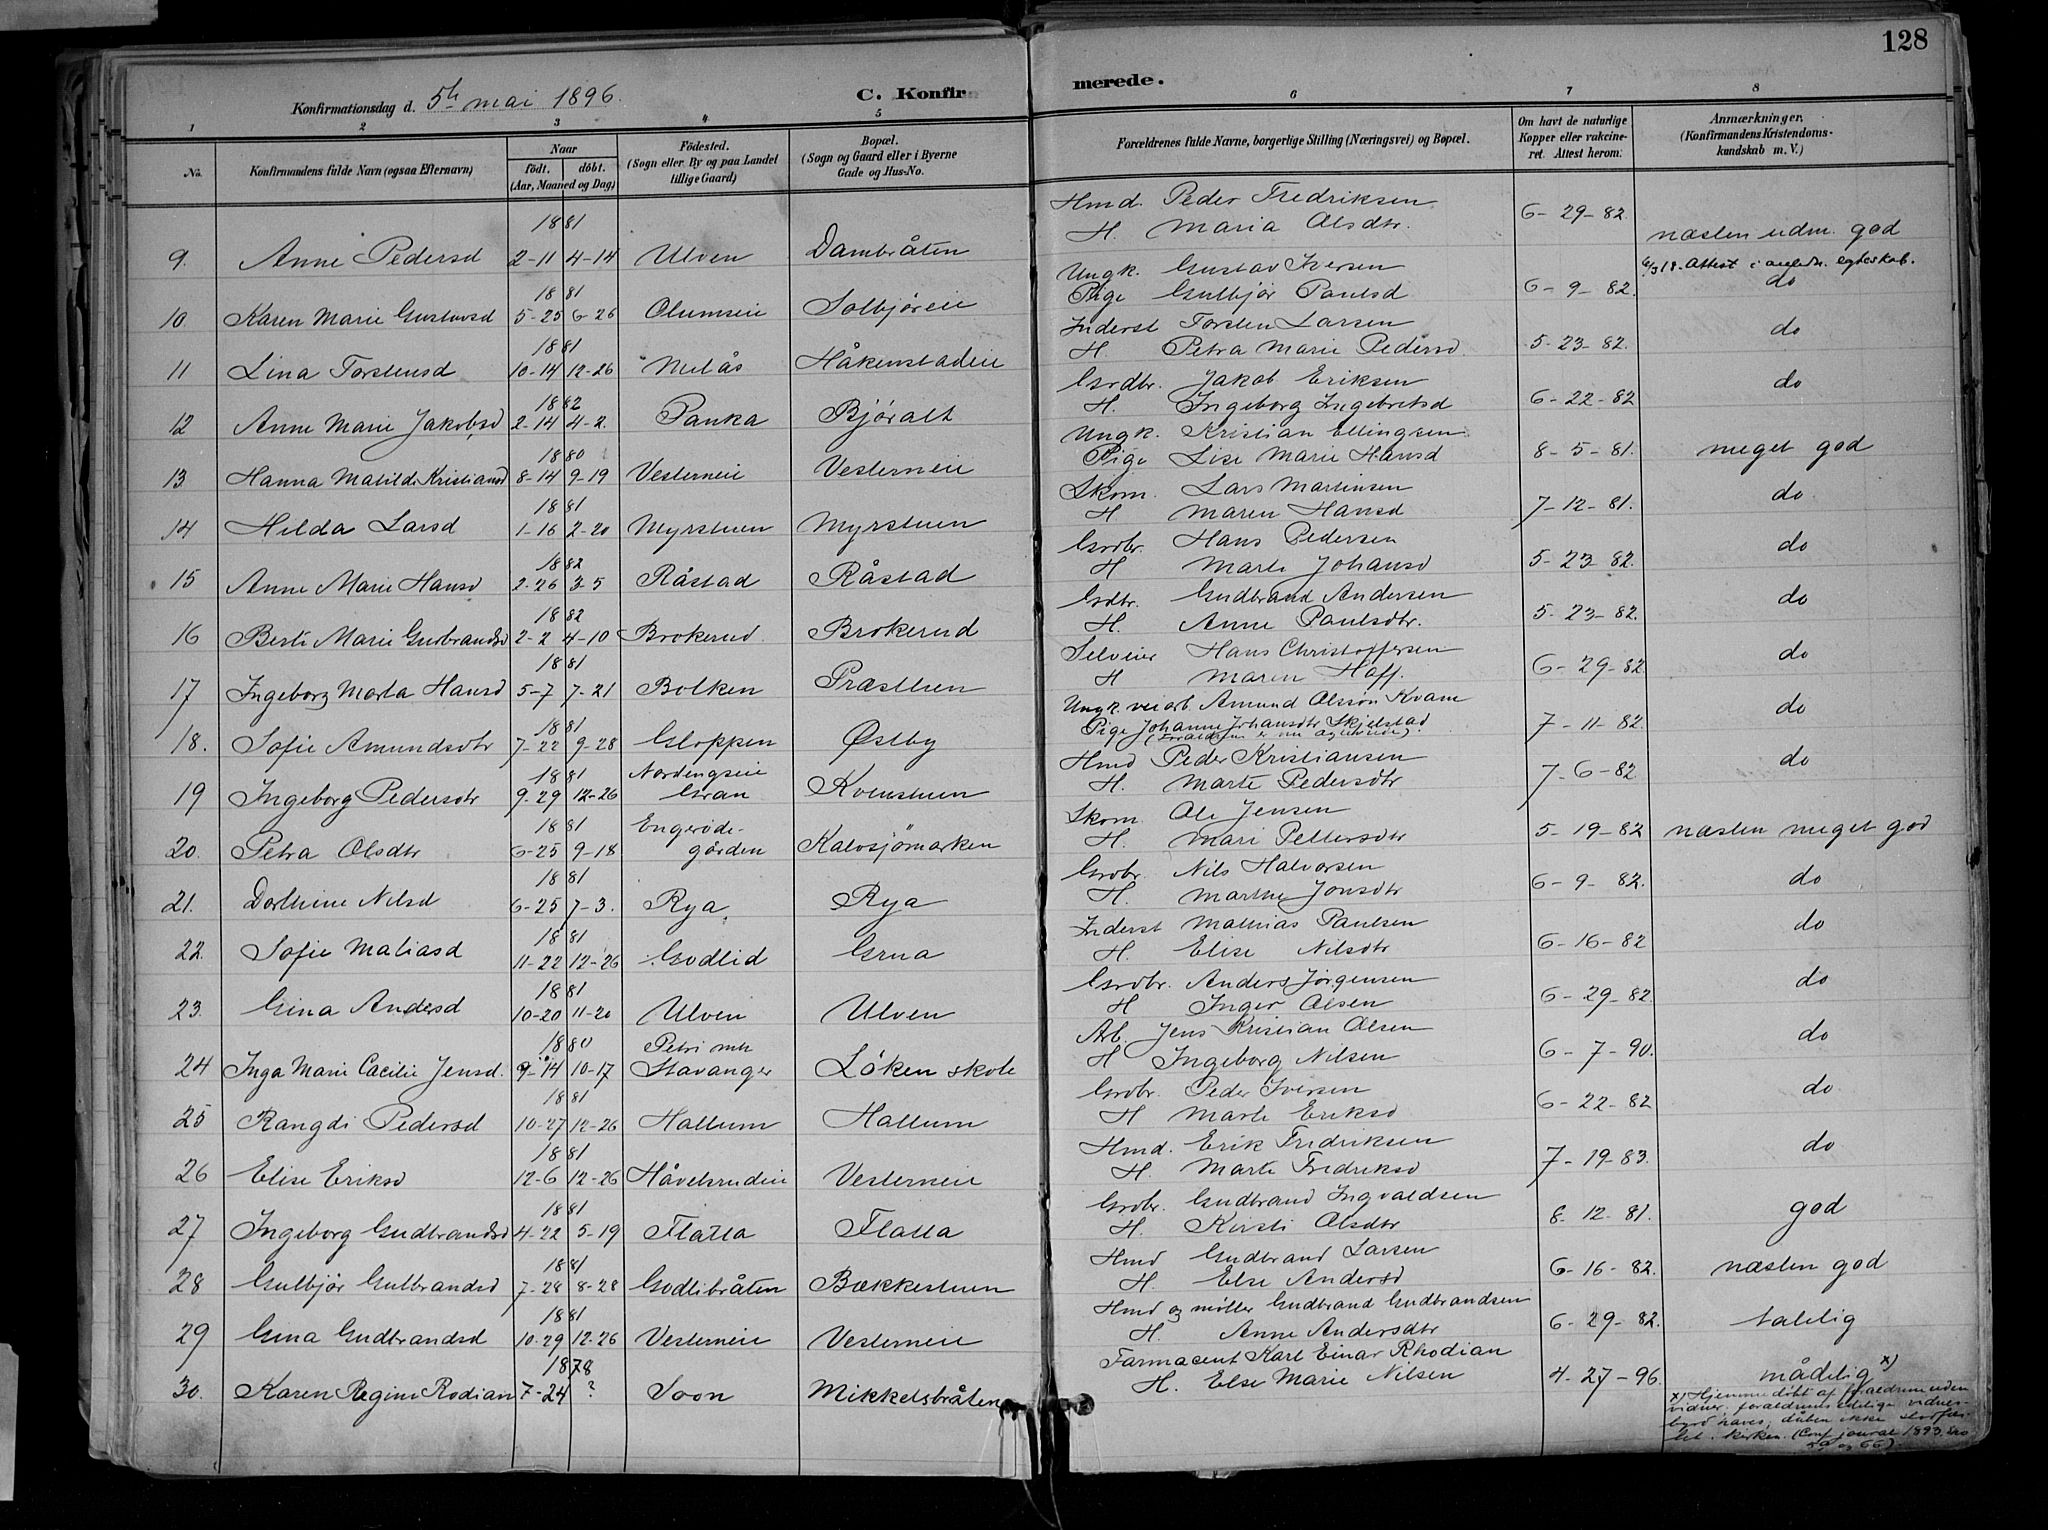 128
Konfirmationsdag d. 5te mai 1896.
C. Konfirmerede.
1 2 3 4 5 6 7 8
No. Konfirmandens fulde Navn (ogsaa Efternavn) Naar født. døbt. (Aar, Maaned og Dag) Fødested. (Sogn eller By og paa Landet tillige Gaard) Bopæl. (Sogn og Gaard eller i Byerne Gade og Hus-No. Forældrenes fulde Navne, borgerlige Stilling (Næringsvei) og Bopæl. Om havt de naturlige Kopper eller vakcineret. Attest herom: Anmærkninger. (Konfirmandens Kristendomskundskab m. V.)
1881 Hmd. Peder Fredriksen
9. Anne Pedersd 2-11 4-14 Ulven Dambråten H. Maria Olsdtr. 6-29-82. næsten udm. god
1881 Ungk. Gustav Iversen Attest i anledn. egteskab.
10 Karen Marie Gustavsd 5-25 6-26 Olumseie Solbjøreie Pige Gulbjør Paulsd 6-9-82. do
1881 Inderst Torsten Larsen
11 Lina Torstensd 10-14 12-26 Melås Håkenstadeie H. Petra Marie Pedersd. 5-23-82. do
1882 Grdbr. Jakob Eriksen
12 Anne Marie Jakobsd 2-14 4-2. Panka Bjøralt H. Ingeborg Ingebretsd 6-22-82 do
1880 Ungk. Kristian Ellingsen
13 Hanna Matilde Kristiansd 8-14 9-19 Vesterneie Vesterneie Pige Lise Marie Hansd 8-5-81. meget god
1881 Skom. Lars Martinsen
14 Hilda Larsd 1-16 2-20 Myrstuen Myrstuen H Maren Hansd 7-12-81. do
1882 Grdbr. Hans Pedersen
15 Anne Marie Hansd 2-26 3-5 Råstad Råstad H Marte Johansd 5-23-82. do
1882 Grdbr. Gudbrand Andersen
16 Berte Marie Gudbrandsd 2-2 4-10 Brokerud. Brokerud H. Anne Paulsdtr. 5-23-82. do
1881 Selveier Hans Christoffersen
17 Ingeborg Marta Hansd 5-7 7-21 Bolken Præstuen H Maren Hoff. 6-29-82. do
1881 Ungk. veiarb Amund Olsson Kvam
18. Sofie Amundsdtr 7-22 9-28 Gloppen Østby Pige Johanne Johansdtr Skjelstad 7-11-82. do
(Forældrene er nu
1881 Nordengseie Hmd Peder Kristiansen
19 Ingeborg Pedersdtr 9-29 12-26 Gran Kvenstuen H. Marte Pedersdtr 7-6-82. do
1881 Engerøde- Skom Ole Jensen
20. Petra Olsdtr 6-25 9-18 gården Kalvsjömarken H. Mari Pettersdtr 5-19-82 næsten meget god
1881 Grdbr. Nils Halvorsen
21. Dorthine Nilsd 6-25 7-3. Rya Rya H. Marthe Jonsdtr 6-9-82. do
1881 Inderst Mathias Paulsen
22. Sofie Matiasd 11-22 12-26 Godlid Grua H. Elise Nilsdtr 6-16-82 do
1881 Grdbr. Anders Jørgensen
23. Gina Andersd 10-20 11-20 Ulven Ulven H Inger Olsen 6-29-82. do
1880 Petri mh Arb. Jens Kristian Olsen
24 Inga Marie Cacilie Jensd. 9-14 10-17 Stavanger Löken skole H Ingeborg Nilsen 6-7-90. do
1881 Grdbr. Peder Iversen
25 Rangdi Pedersd 10-27 12-26 Hallum Hallum H Marte Eriksd 6-22-82 do
1881 Hmd. Erik Fredriksen
26 Elise Eriksd 12-6 12-26 Håvelsrudeie Vesterneie H. Marte Fredriksd 7-19-83. do
1881 Grdbr. Gudbrand Ingvaldsen
27 Ingeborg Gudbrandsd 4-22 5-19 Flatla Flatla H. Kirsti Olsdtr 8-12-81. god
1881 Hmd Gudbrand Larsen
28 Gulbjør Gulbrandsd 7-28 8-28 Godlibråten Bækkestuen H. Else Andersd 6-16-82. næsten god
1881 Hmd og møller Gudbrand Gudbrandsen
29 Gina Gudbrandsd 10-29 12-26 Vesterneie Vesterneie H. Anne Andersdtr 6-29-82. talelig
1878 Farmaceut Karl Einar Rhodian
30. Karen Regine Rodian 7-24 ? Soon Mikkelsbråten H. Else Marie Nilsen 4-27-96. mådelig x)
x) Hjemmedøbt af forældrene uden
vidner. forældrenes edelige vidnes-
byrd haves; dåben ikke stadfæs-
tet i kirken. (Conf. journal 1893. No
og 66).